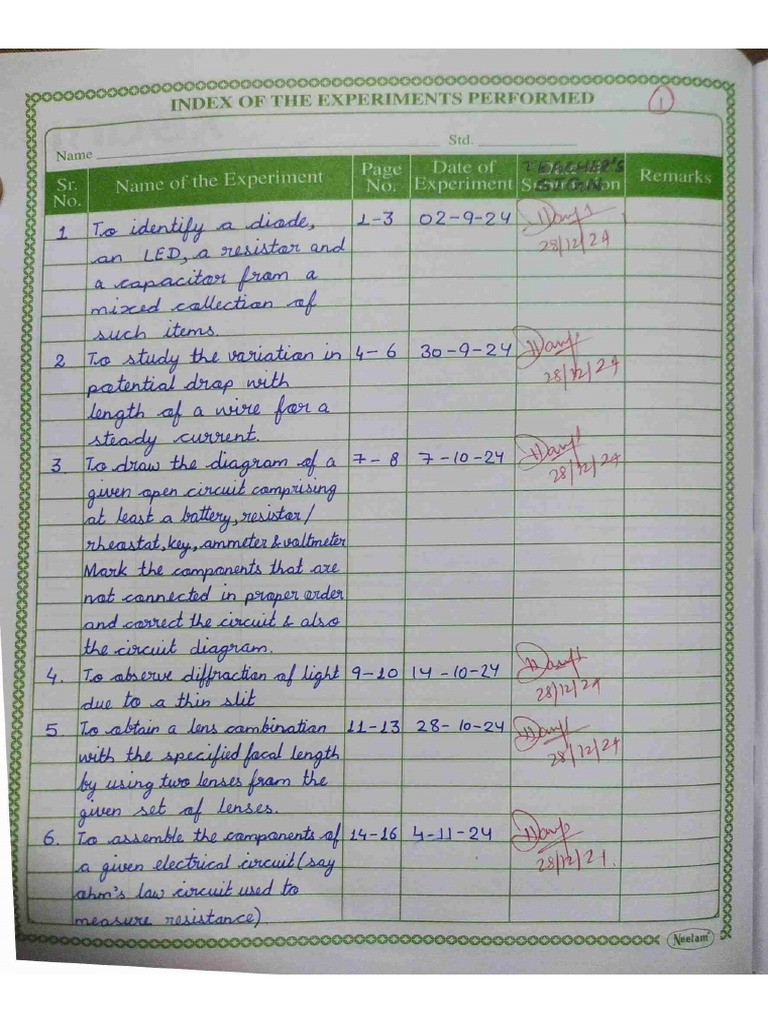 INDEX OF THE EXPERIMENTS PERFORMED
1
Name Std.
Sr. No. Name of the Experiment Page No. Date of Experiment TEACHER'S SIGN Remarks
1 To identify a diode, 1-3 02-9-24
an LED, a resistor and 28/12/24
a capacitor from a
mixed collection of
such items.
2 To study the variation in 4-6 30-9-24
potential drop with 28/12/24
length of a wire for a
steady current.
3 To draw the diagram of a 7-8 7-10-24
given open circuit comprising 28/12/24
at least a battery, resistor/
rheostat, key, ammeter & voltmeter
Mark the components that are
not connected in proper order
and correct the circuit & also
the circuit diagram.
4. To observe diffraction of light 9-10 14-10-24
due to a thin slit 28/12/24
5 To obtain a lens combination 11-13 28-10-24
with the specified focal length 28/12/24
by using two lenses from the
given set of lenses.
6. To assemble the components of 14-16 4-11-24
a given electrical circuit (say 28/12/24.
ohm's law circuit used to
measure resistance)
Neelam